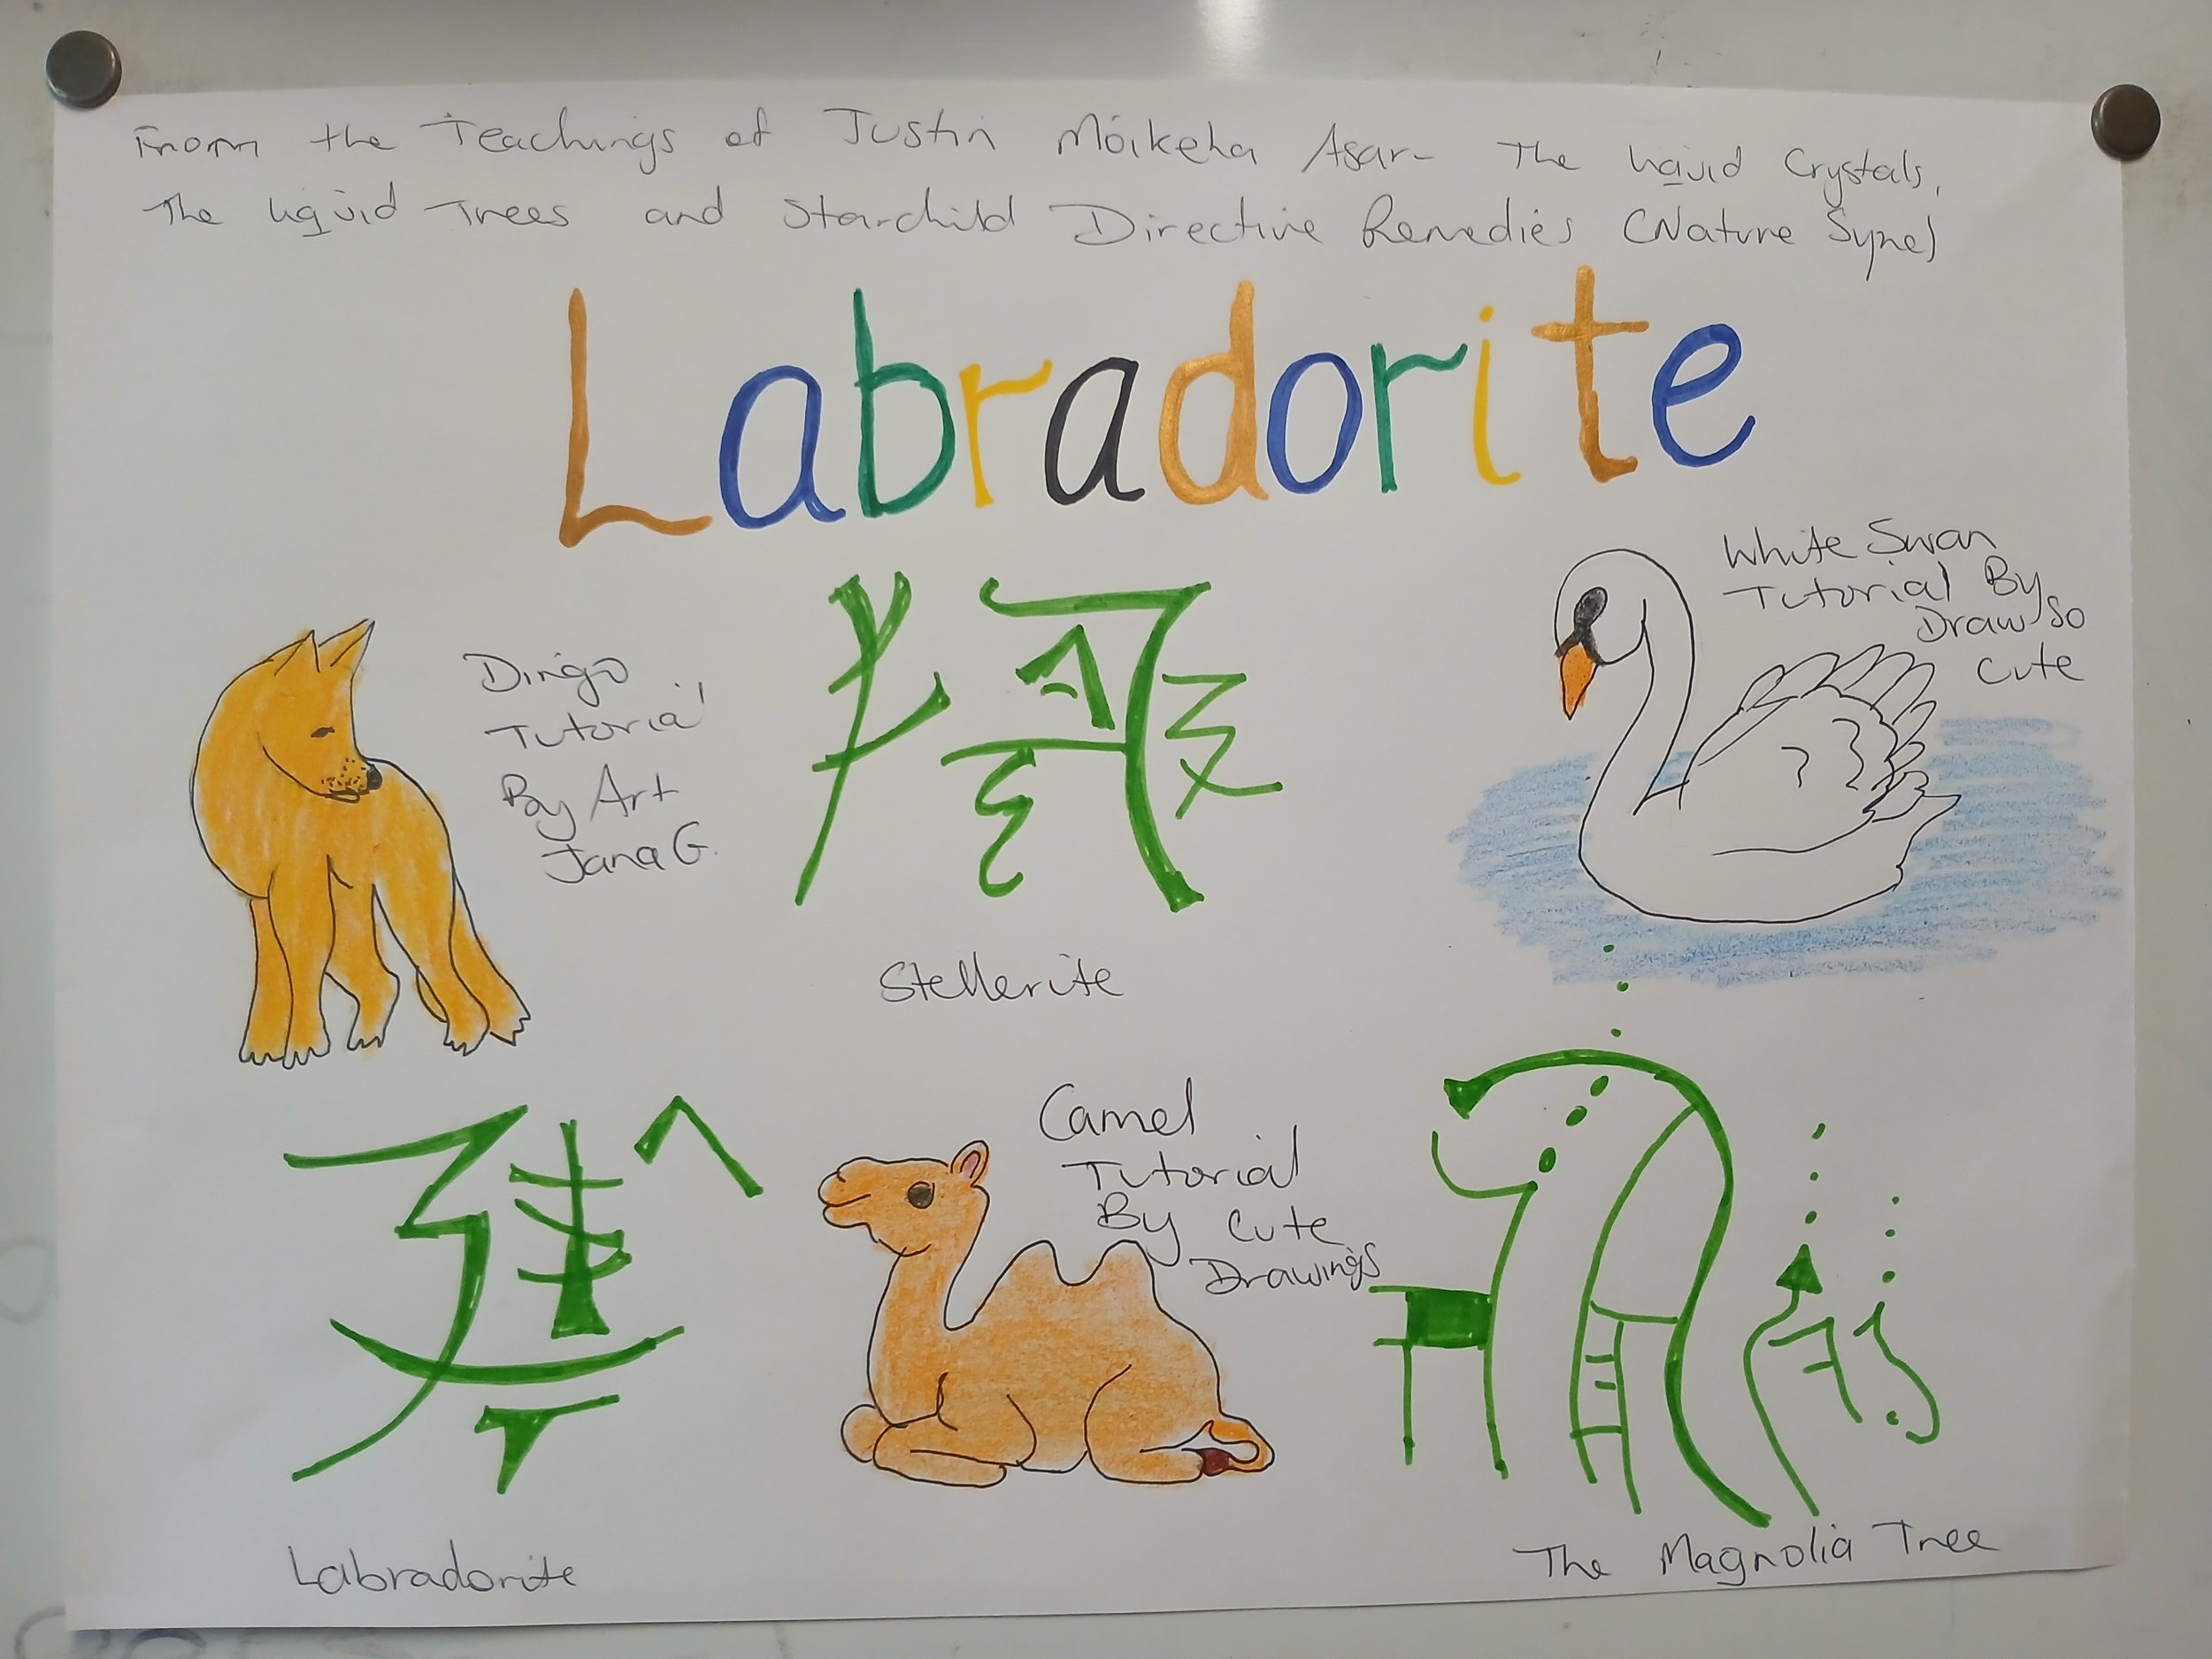 From the Teachings of Justin Moikeha Asar - The Liquid Crystals,
The Liquid Trees and Starchild Directive Remedies (Nature Sync)
Labradorite
White Swan
Tutorial By
Draw So
Cute
Dingo
Tutorial
By Art
Jana G.
Stellerite
Camel
Tutorial
By Cute
Drawings
Labradorite
The Magnolia Tree